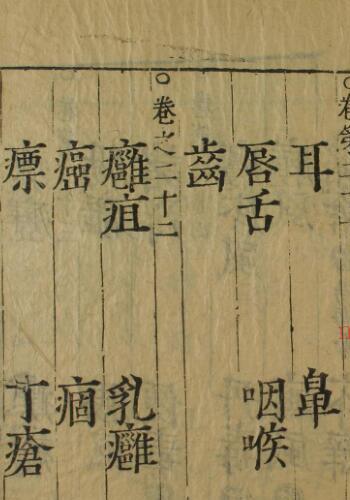 ○卷第二十一
耳 鼻
唇舌 咽喉
齒
○卷之二十二
癰疽 乳癰
癌 痼
瘭 丁瘡